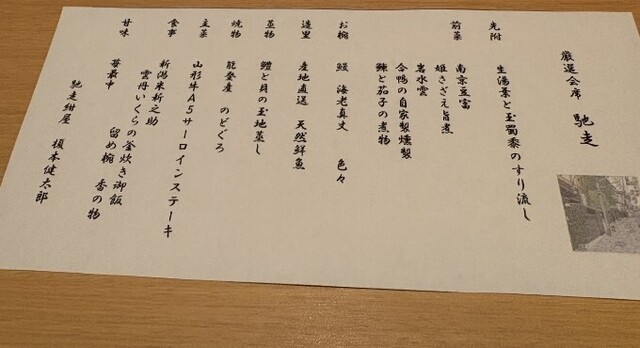 厳選会席 馳走
先附 生湯葉と玉蜀黍のすり流し
前菜 南京豆富
姫さざえ旨煮
岩水雲
合鴨の自家製燻製
鰊と茄子の煮物
お椀 鱧 海老真丈 色々
造里 産地直送 天然鮮魚
蒸物 鱧と貝の玉地蒸し
焼物 能登産 のどぐろ
主菜 山形牛A5サーロインステーキ
食事 新潟米新之助
雲丹いくらの釜炊き御飯
留め椀 香の物
甘味 苺最中
馳走紺屋 榎本健太郎